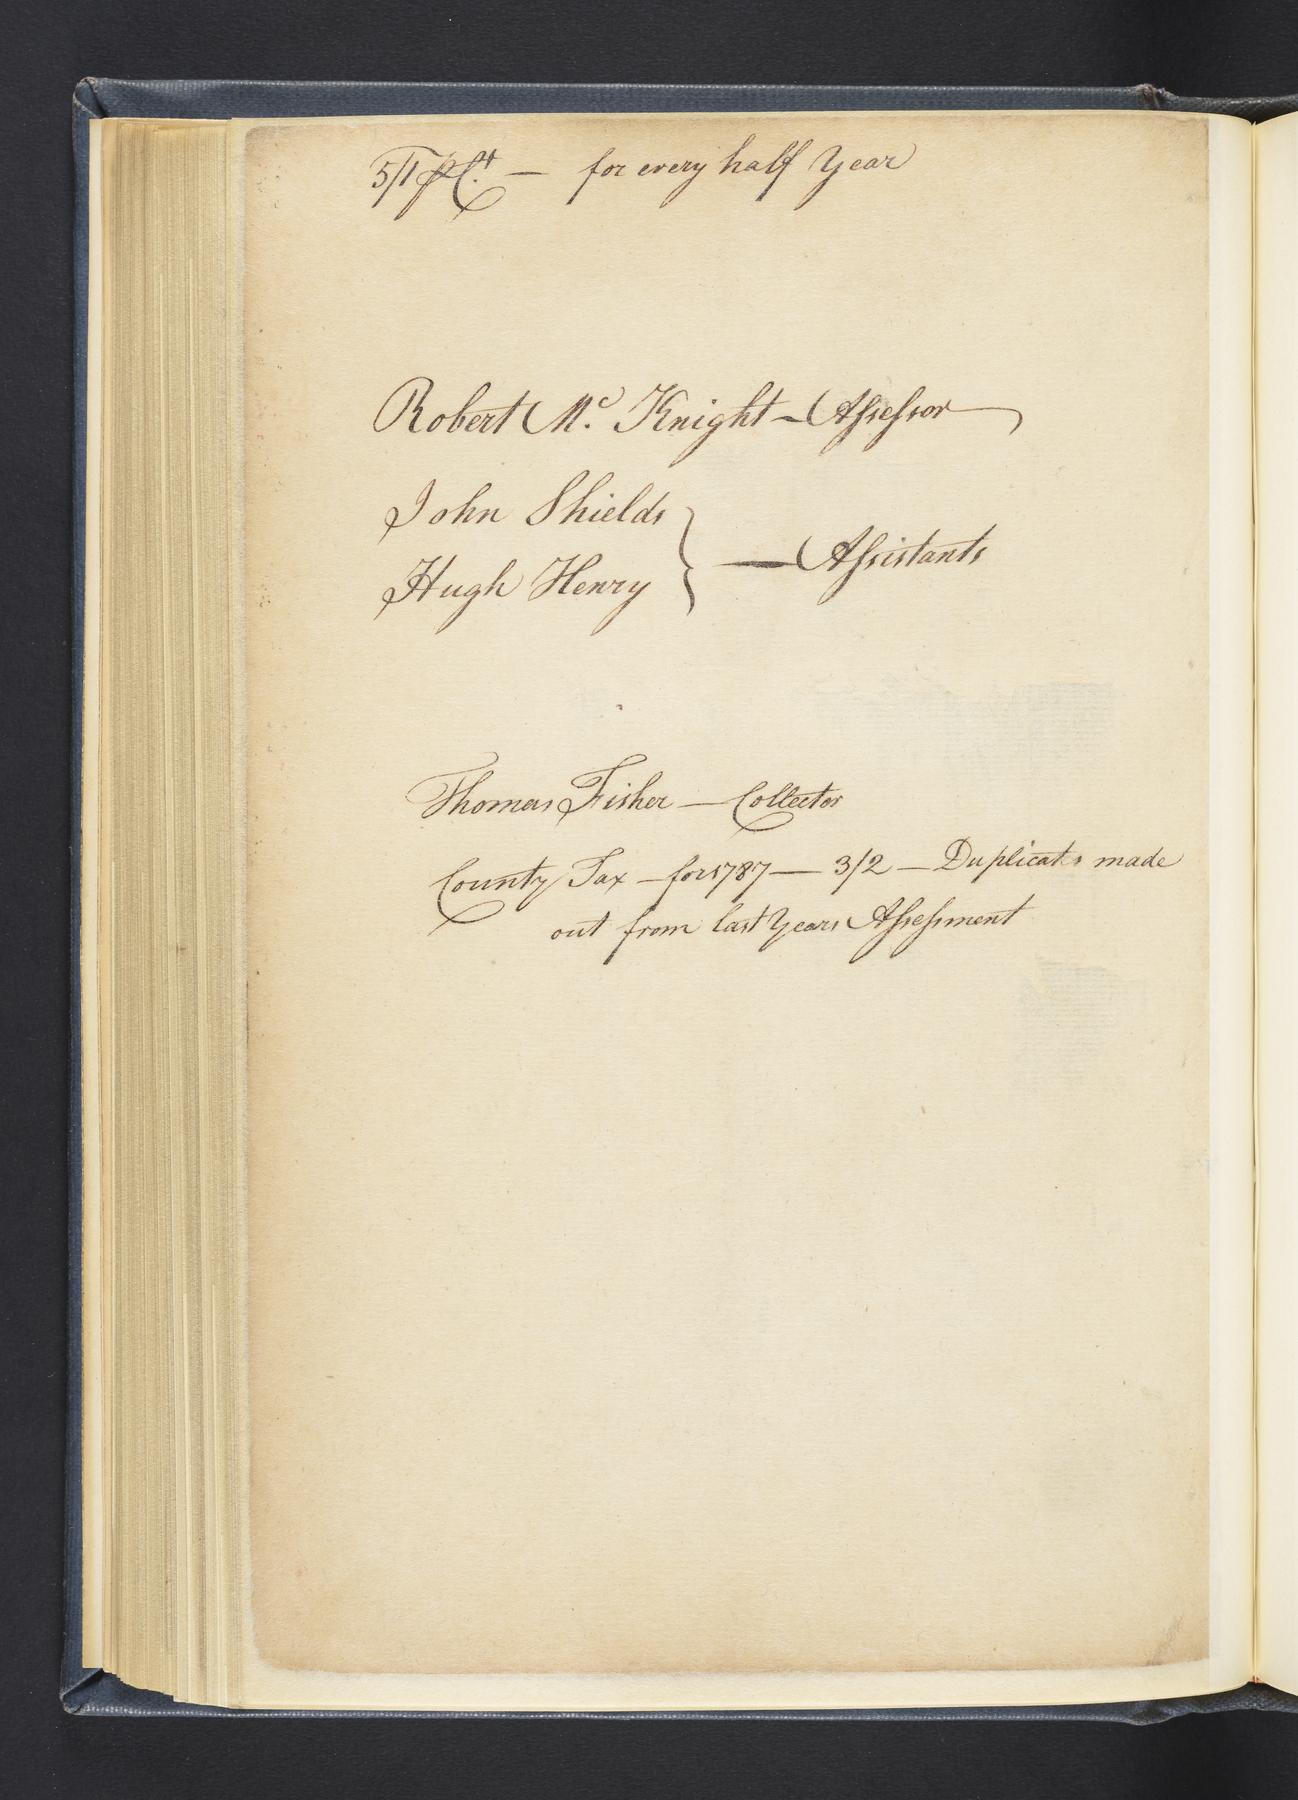 5/1 ⅌ Ct. — for every half Year
Robert Mc. Knight — Assessor
John Shields
Hugh Henry } — Assistants
Thomas Fisher — Collector
County Tax — for 1787 — 3/2 — Duplicates made
out from last Years Assessment